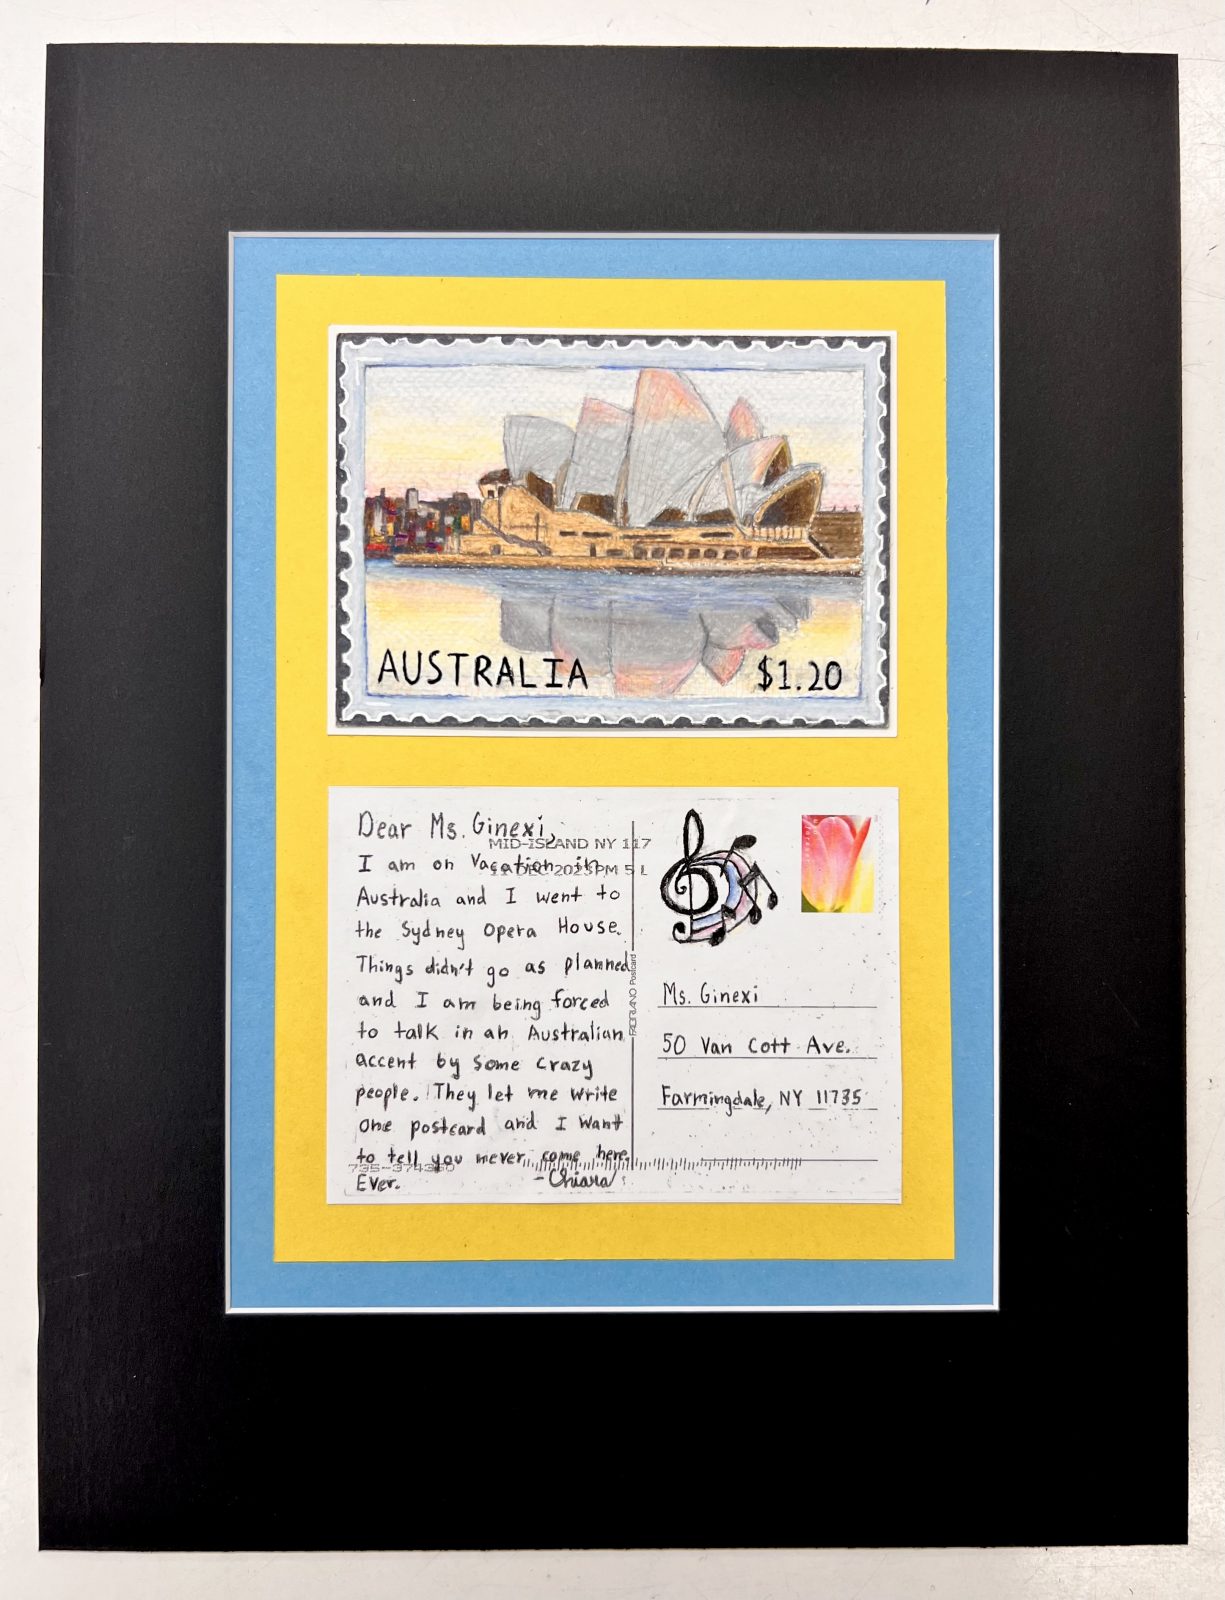 AUSTRALIA
$1.20
Dear Ms. Ginexi,
MID-ISLAND NY 117
I am on Vacation in
11 DEC 2023 PM 5 L
Australia and I went to
the Sydney Opera House.
Things didn't go as planned
and I am being forced
to talk in an Australian
accent by some crazy
people. They let me write
one postcard and I want
to tell you never come here.
Ever.
-Chiara
FABRIANO Postcard
Ms. Ginexi
50 Van Cott Ave.
Farmingdale, NY 11735